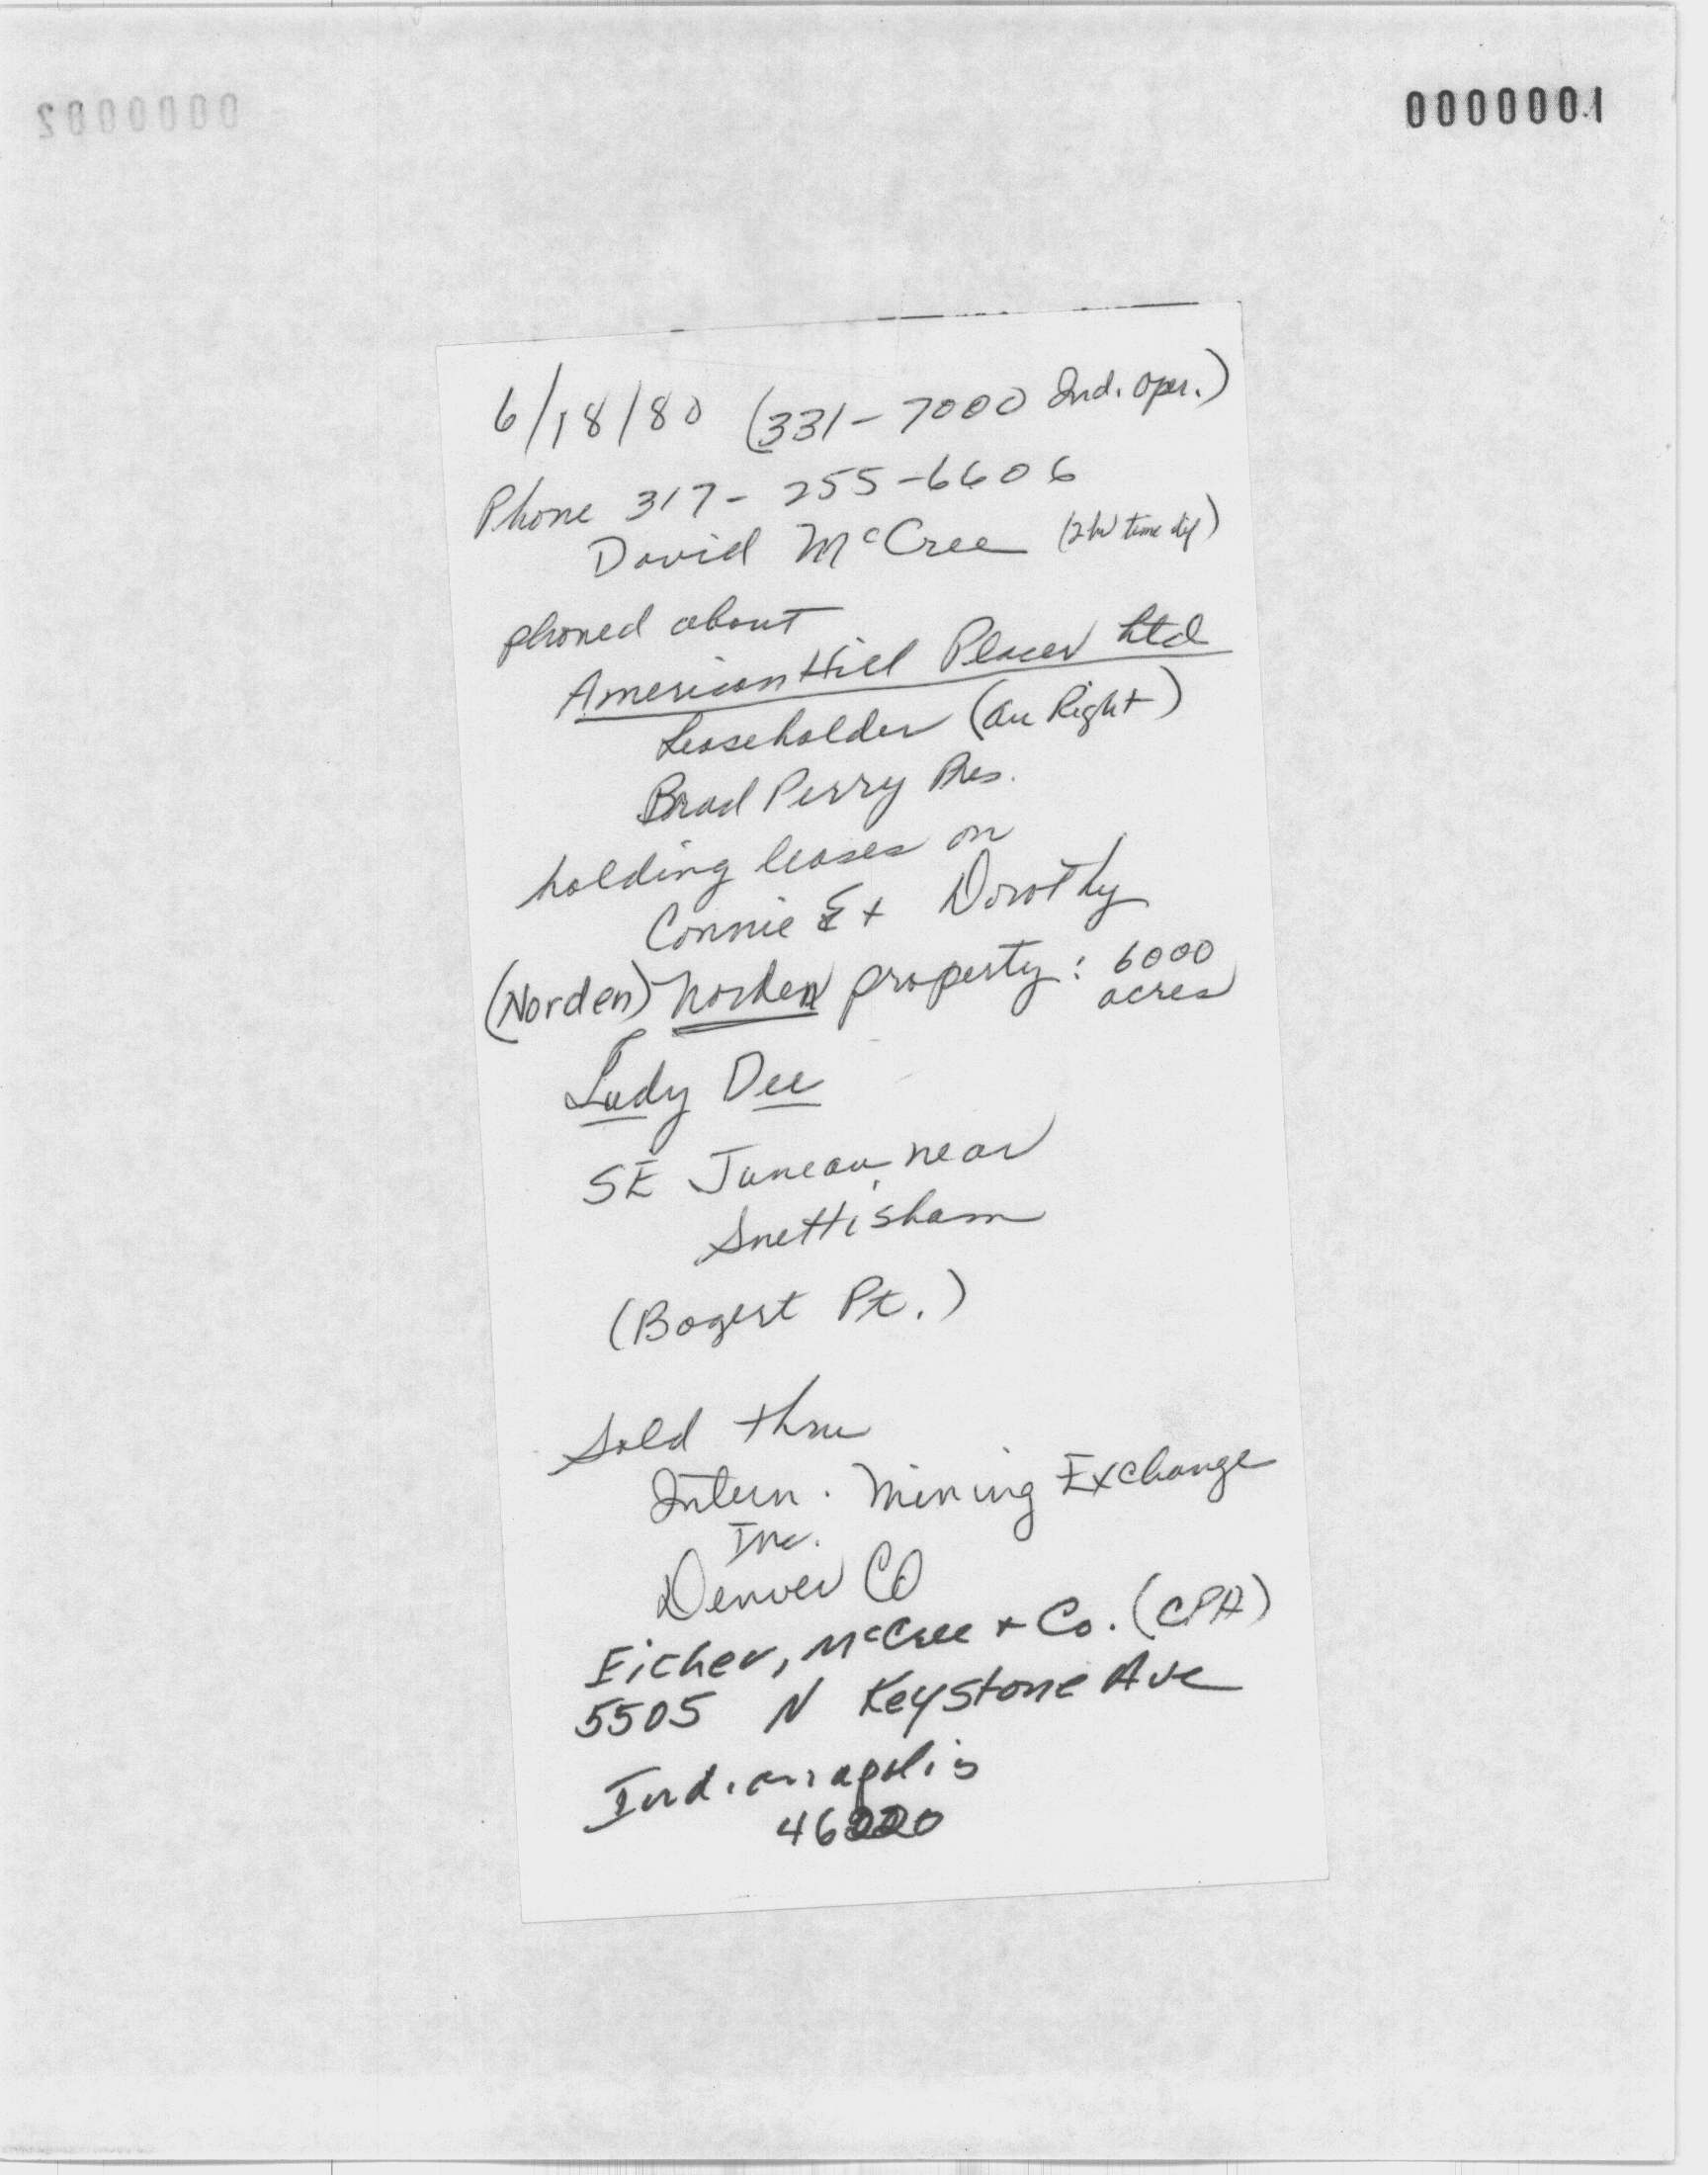 0000002
0000001
6/18/80 (331-7000 Ind. Oper.)
Phone 317-255-6606
David McCree (2 hr time dif)
phoned about
American Hill Placer Ltd
Leaseholder (Au Right)
Brad Perry Pres.
holding leases on
Connie E + Dorothy
(Norden) Norden property: 6000
acres
Lady Dee
SE Juneau near
Snettisham
(Bogert Pt.)
Sold thru
Intern. Mining Exchange
Inc.
Denver CO
Eicher, McCree + Co. (CPA)
5505 N Keystone Ave
Indianapolis
46220